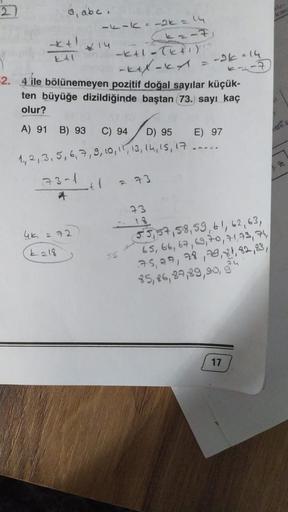 27
a, abc.
-k-k = -2k = 14
k = -7
-k+1 / k+1 * 14
-k+1 - (k+1)
-k+1-k-1 = -2k = 14
k = -7
2. 4 ile bölünemeyen pozitif doğal sayılar küçük-
ten büyüğe dizildiğinde baştan 73. sayı kaç
olur?
A) 91 B) 93 C) 94 D) 95 E) 97
1, 2, 3, 5, 6, 7, 9, 10, 11, 13, 14, 15, 17 -----
73-1 / 4 +1 = 73
4k = 72
k = 18
73
18
55, 57, 58, 59, 61, 62, 63,
65, 66, 67, 69, 70, 71, 73, 74,
75, 77, 78, 79, 81, 82, 83,
85, 86, 87, 89, 90, 91
17